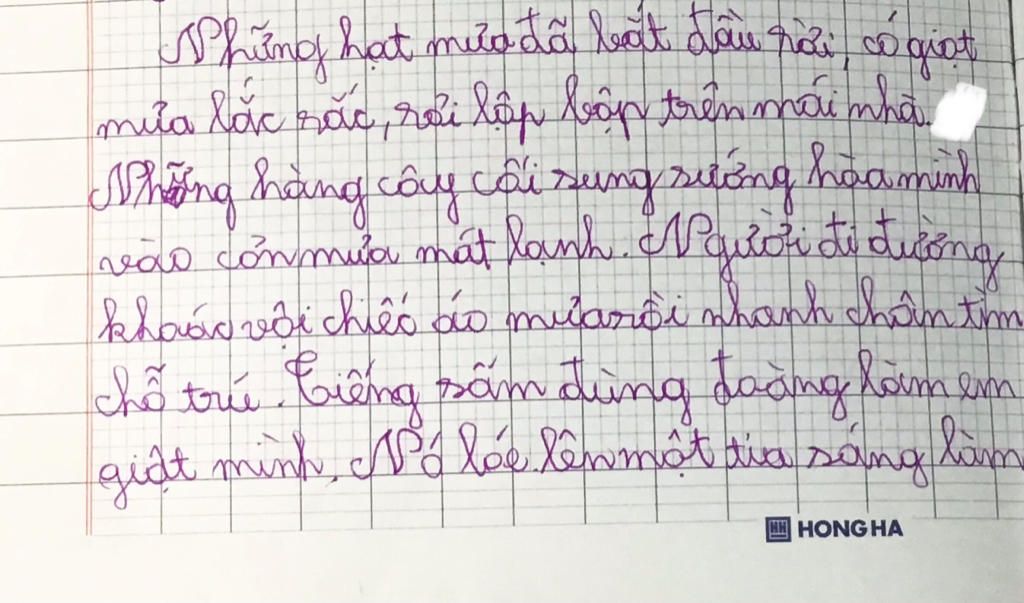 Những hạt mưa đã bắt đầu rơi, có giọt
mưa lắc rắc, rơi lộp bộp trên mái nhà.
Những hàng cây cối sung sướng hòa mình
vào cơn mưa mát lạnh. Người đi đường
khoác vội chiếc áo mưa rồi nhanh chân tìm
chỗ trú. Tiếng sấm đùng đoàng làm em
giật mình. Nó lóe lên một tia sáng làm
HH HONG HA